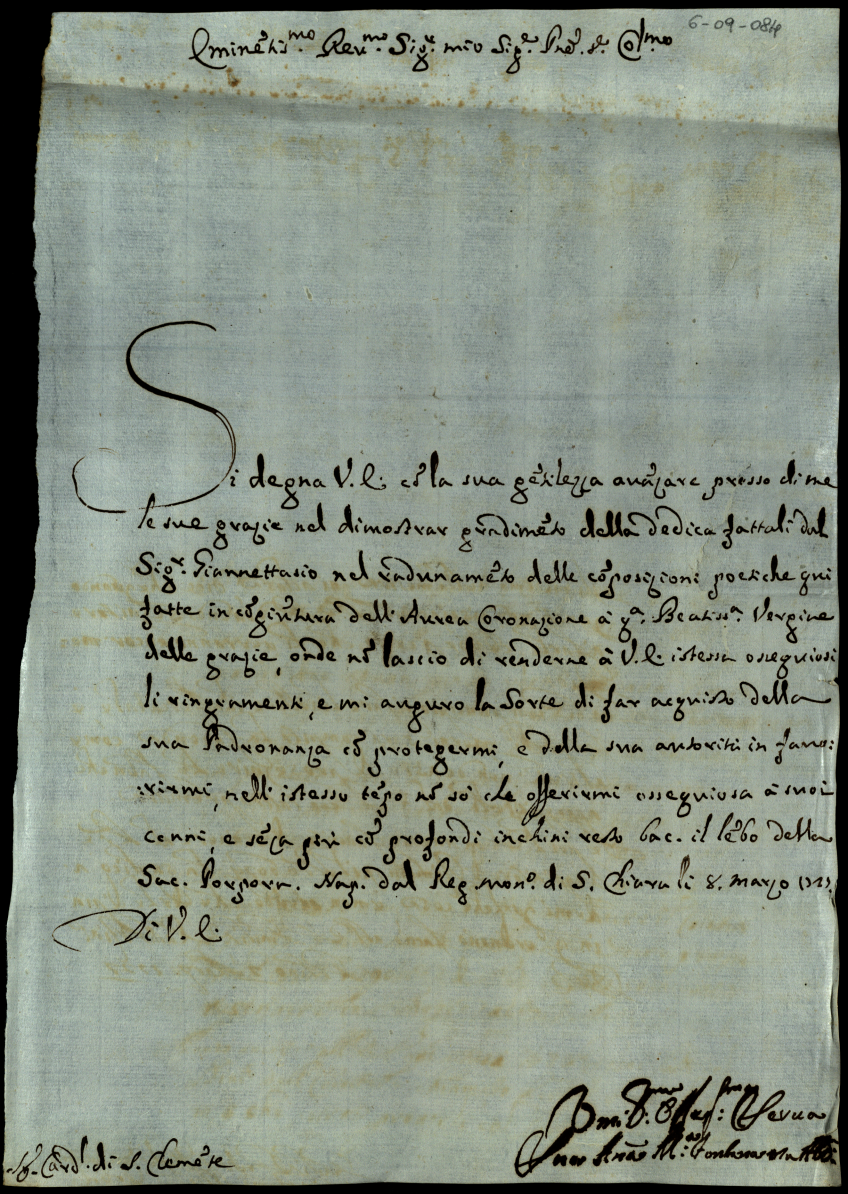 6-09-084
Eminẽtis.mo Reu.mo Sig.r mio Sig.e Pnẽ. Col.mo
Si degna V. E: cõ la sua gẽtilezza auãzare presso di me
le sue grazie nel dimostrar gradimẽto della dedica fattali dal
Sig.r Giannettasio nel radunamẽto delle cõposizioni poetiche qui
fatte in cõgiũtura dell'Aurea Coronazione à q.a Beatiss.a Vergine
delle grazie, onde nõ lascio di renderne à V. E. istessa ossequiosi
li ringramenti, e mi auguro la Sorte di far acquisto della
sua Padronanza cõ protegermi, e della sua autorità in fauo:
:rirmi, nell'istesso tẽpo nõ sò che offerirmi ossequiosa à suoi
cenni, e sẽza più cõ profondi inchini resto bac. il lẽbo della
Sac. Porpora. Nap. dal Reg. Mon.o di S. Chiara li 8. marzo
Di V. E:
Serua
Sig. Card.l di S. Clemẽte
Suor